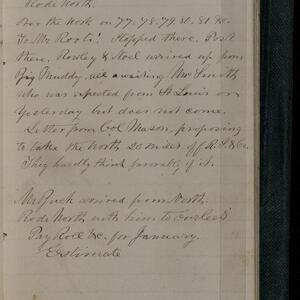 Rode North.
over the work on 77. 78. 79. 80. 81 &c.
To Mr Roots! Stopped there. Post
there. Rosley & Noel arrived up from
Big Muddy, all awaiting Mr Smith
who was expected from St Louis on
Yesterday but does not come.
Letter from Col Mason, proposing
to take the North 20 miles off R. S. & Co.
They hardly think favorably of it.
Mr Buck arrived from North.
Rode North with him to
Pay Roll &c. for January.
Estimate